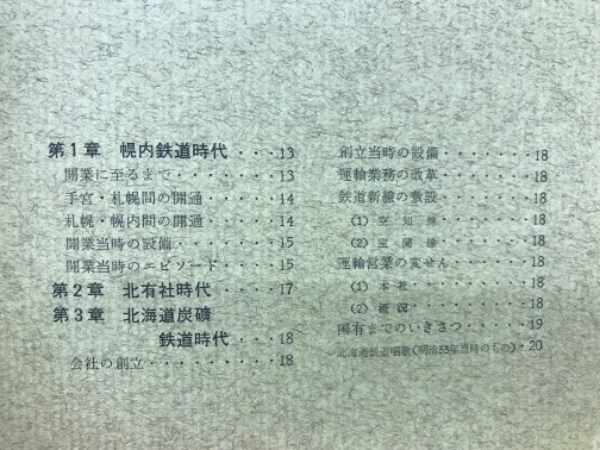 第1章　幌内鉄道時代・・・13
開業に至るまで・・・・・・・13
手宮・札幌間の開通・・・・・14
札幌・幌内間の開通・・・・・14
開業当時の設備・・・・・・・15
開業当時のエピソード・・・・15
第2章　北有社時代・・・・17
第3章　北海道炭礦
鉄道時代・・・18
会社の創立・・・・・・・・・18
創立当時の設備・・・・・・・18
運輸業務の改革・・・・・・・18
鉄道新線の敷設・・・・・・・18
(1) 空知線・・・・・・・18
(2) 室蘭線・・・・・・・18
運輸営業の変せん・・・・・・18
(1) 本社・・・・・・・・18
(2) 概況・・・・・・・・18
国有までのいきさつ・・・・・19
北海道鉄道唱歌(明治35年当時のもの)・20